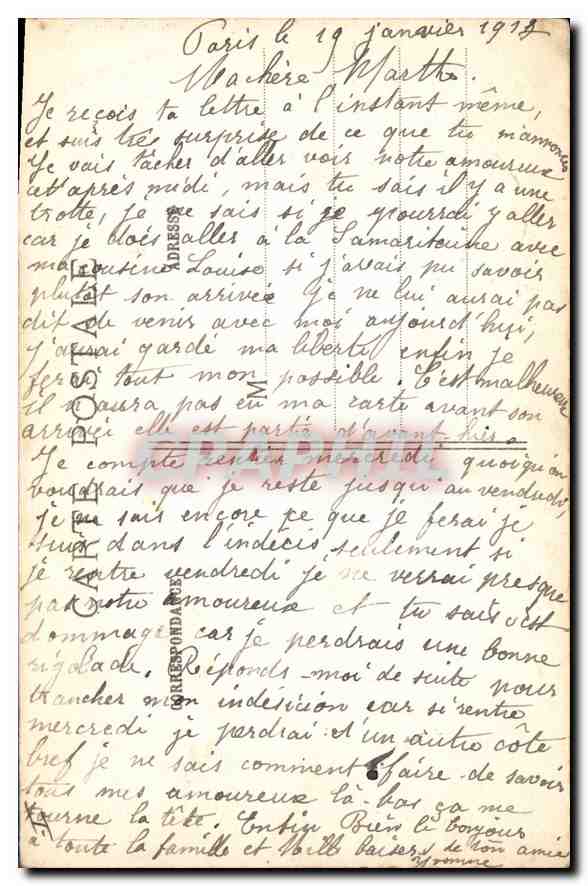 Paris le 19 janvier 1913
Ma chère Marthe.
Je reçois ta lettre à l'instant même,
et suis très surprise de ce que tu m'annonces
Je vais tâcher d'aller voir notre amoureux
cet après midi, mais tu sais il y a une
trotte, je ne sais si je pourrai y aller
car je dois aller à la Samaritaine avec
ma cousine Louise si j'avais pu savoir
plutôt son arrivée je ne lui aurai pas
dit de venir avec moi aujourd'hui,
j'aurai gardé ma liberté enfin je
ferai tout mon possible. C'est malheureux
il n'aura pas eu ma carte avant son
arrivée elle est partie d'avant-hier.
Je compte rentrer mercredi, quoiqu'on
voudrais que je reste jusqu'au vendredi,
je ne sais encore ce que je ferai je
suis dans l'indécis, seulement si
je rentre vendredi je ne verrai presque
pas notre amoureux et tu sais c'est
dommage car je perdrais une bonne
rigolade. Réponds-moi de suite pour
trancher mon indésicion car si rentre
mercredi je perdrai d'un autre côté
bref je ne sais comment faire de savoir
tous mes amoureux là-bas ça me
tourne la tête. Enfin Bien le bonjour
à toute la famille et mille baisers de ton amie
Yvonne
CARTE POSTALE
ADRESSE
M
CORRESPONDANCE
CPAPHIL